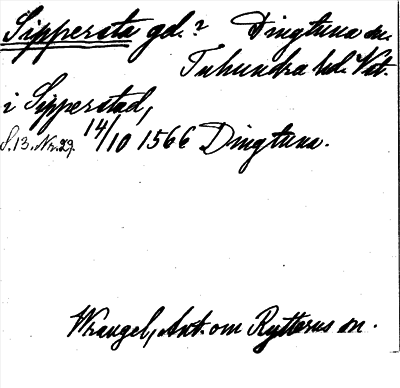 Sippersta gd.? Dingtuna sn.
Tuhundra hd. Vst.
i Sipperstad,
S.13. Nr.29. 14/10 1566 Dingtuna.
Wrangel, Ant. om Rytterns sn.